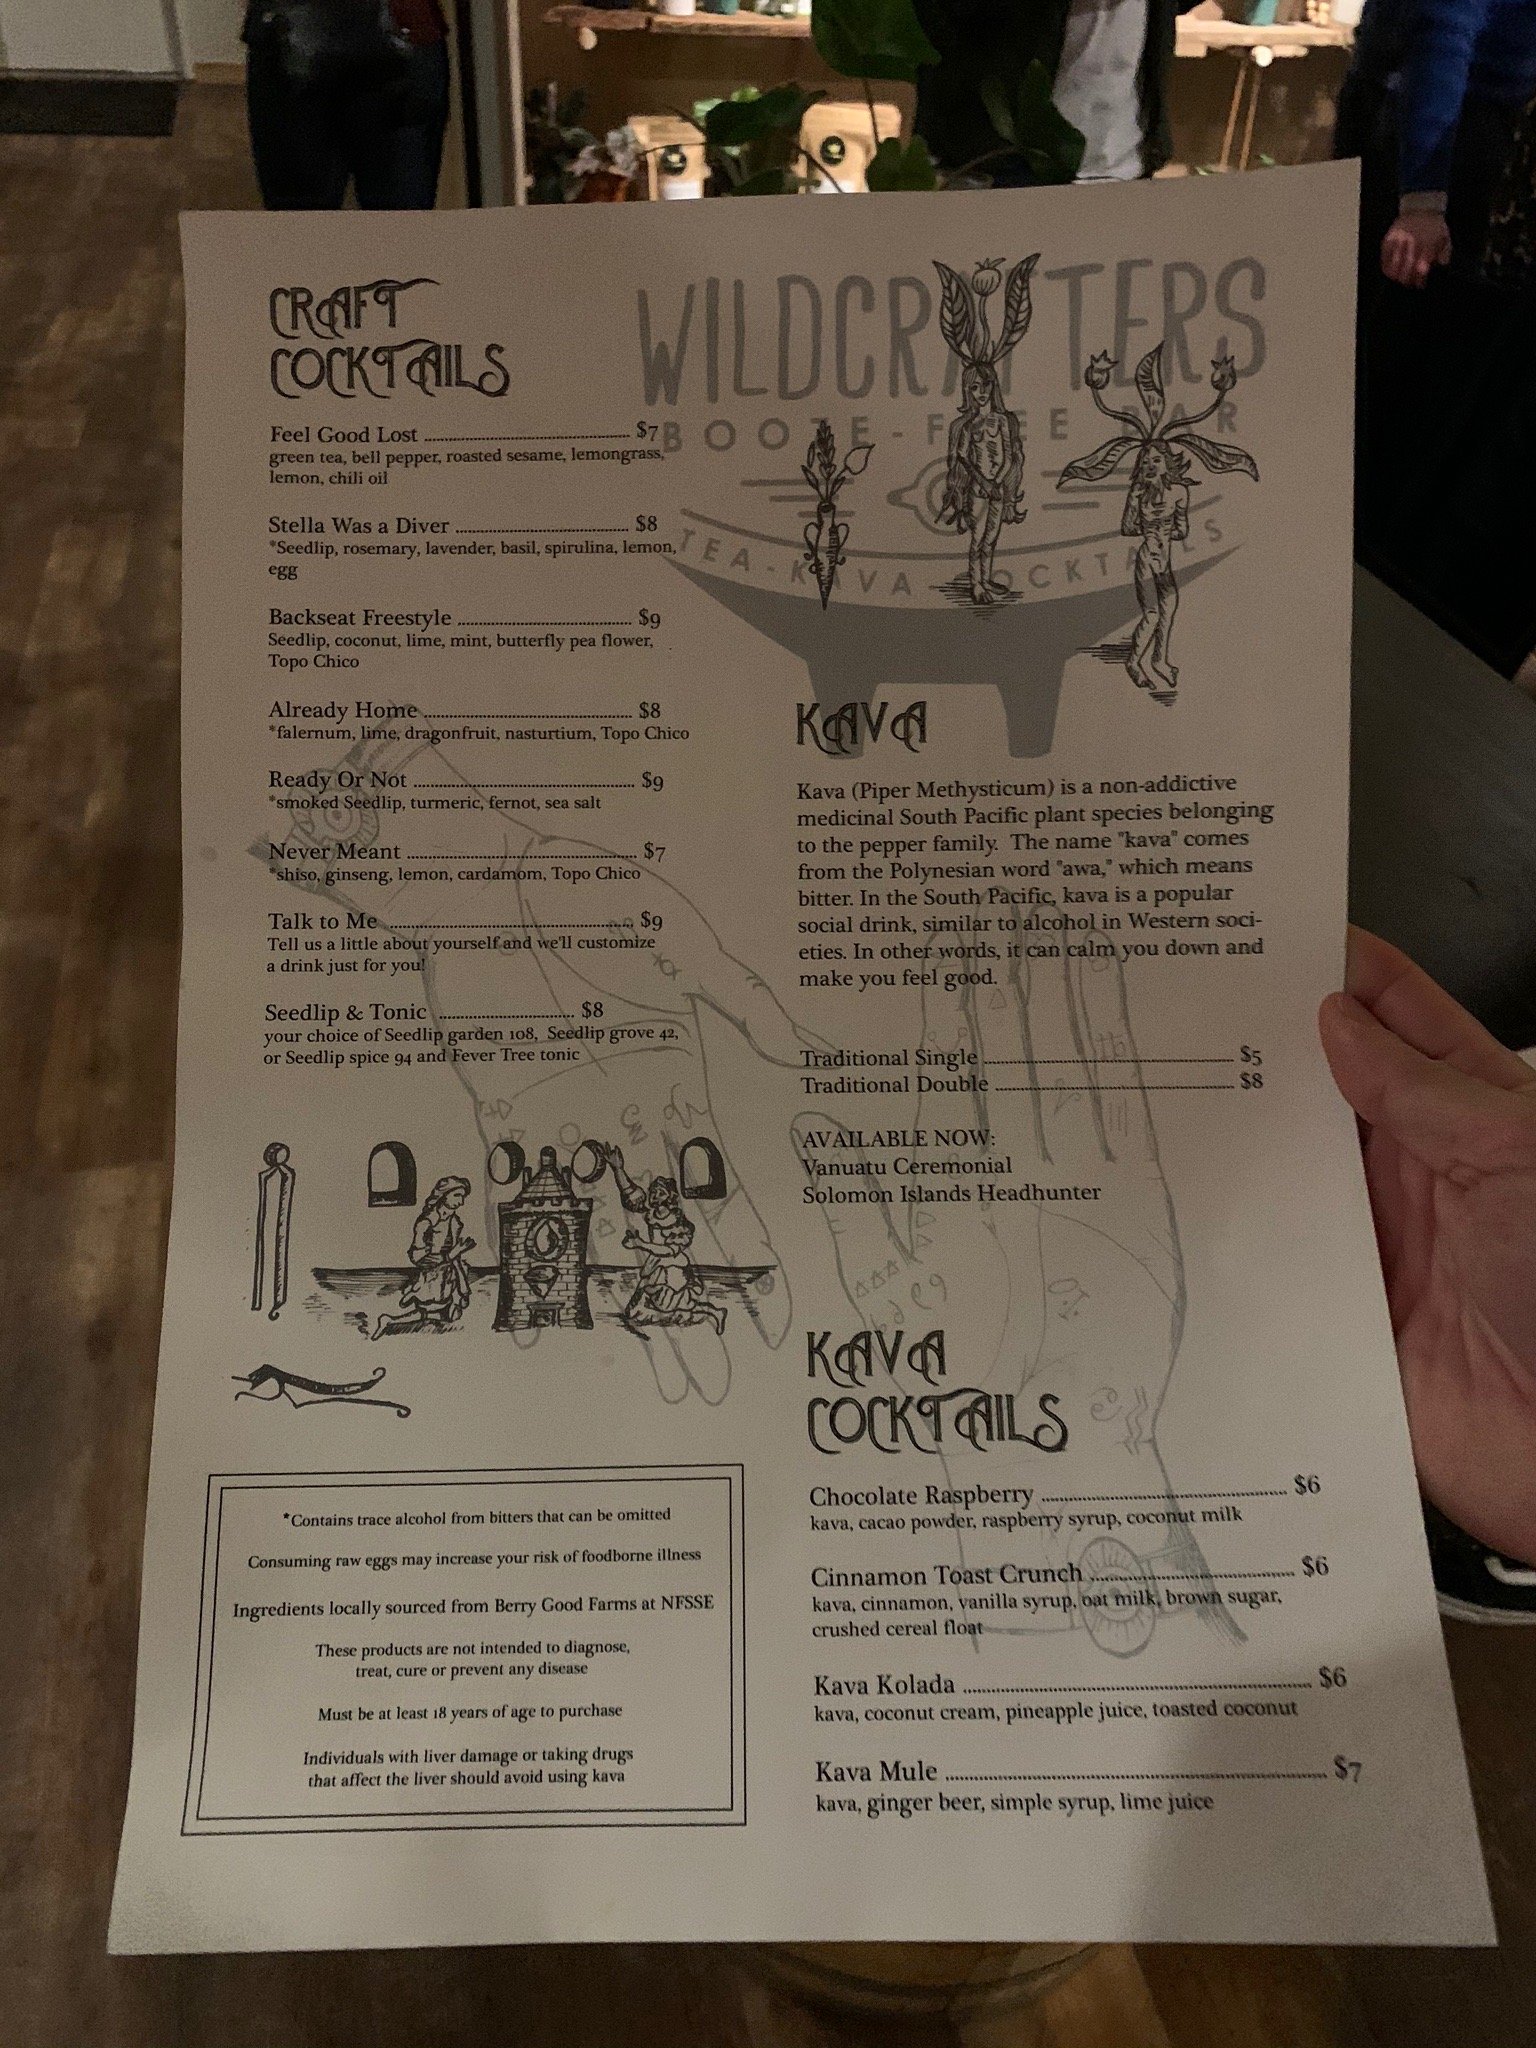 WILDCRAFTERS
BOOZE-FREE BAR
TEA-KAVA-COCKTAILS
CRAFT
COCKTAILS
Feel Good Lost $7
green tea, bell pepper, roasted sesame, lemongrass,
lemon, chili oil
Stella Was a Diver $8
*Seedlip, rosemary, lavender, basil, spirulina, lemon,
egg
Backseat Freestyle $9
Seedlip, coconut, lime, mint, butterfly pea flower,
Topo Chico
Already Home $8
*falernum, lime, dragonfruit, nasturtium, Topo Chico
Ready Or Not $9
*smoked Seedlip, turmeric, fernot, sea salt
Never Meant $7
*shiso, ginseng, lemon, cardamom, Topo Chico
Talk to Me $9
Tell us a little about yourself and we'll customize
a drink just for you!
Seedlip & Tonic $8
your choice of Seedlip garden 108, Seedlip grove 42,
or Seedlip spice 94 and Fever Tree tonic
*Contains trace alcohol from bitters that can be omitted
Consuming raw eggs may increase your risk of foodborne illness
Ingredients locally sourced from Berry Good Farms at NFSSE
These products are not intended to diagnose,
treat, cure or prevent any disease
Must be at least 18 years of age to purchase
Individuals with liver damage or taking drugs
that affect the liver should avoid using kava
KAVA
Kava (Piper Methysticum) is a non-addictive
medicinal South Pacific plant species belonging
to the pepper family. The name "kava" comes
from the Polynesian word "awa," which means
bitter. In the South Pacific, kava is a popular
social drink, similar to alcohol in Western soci-
eties. In other words, it can calm you down and
make you feel good.
Traditional Single $5
Traditional Double $8
AVAILABLE NOW:
Vanuatu Ceremonial
Solomon Islands Headhunter
KAVA
COCKTAILS
Chocolate Raspberry $6
kava, cacao powder, raspberry syrup, coconut milk
Cinnamon Toast Crunch $6
kava, cinnamon, vanilla syrup, oat milk, brown sugar,
crushed cereal float
Kava Kolada $6
kava, coconut cream, pineapple juice, toasted coconut
Kava Mule $7
kava, ginger beer, simple syrup, lime juice